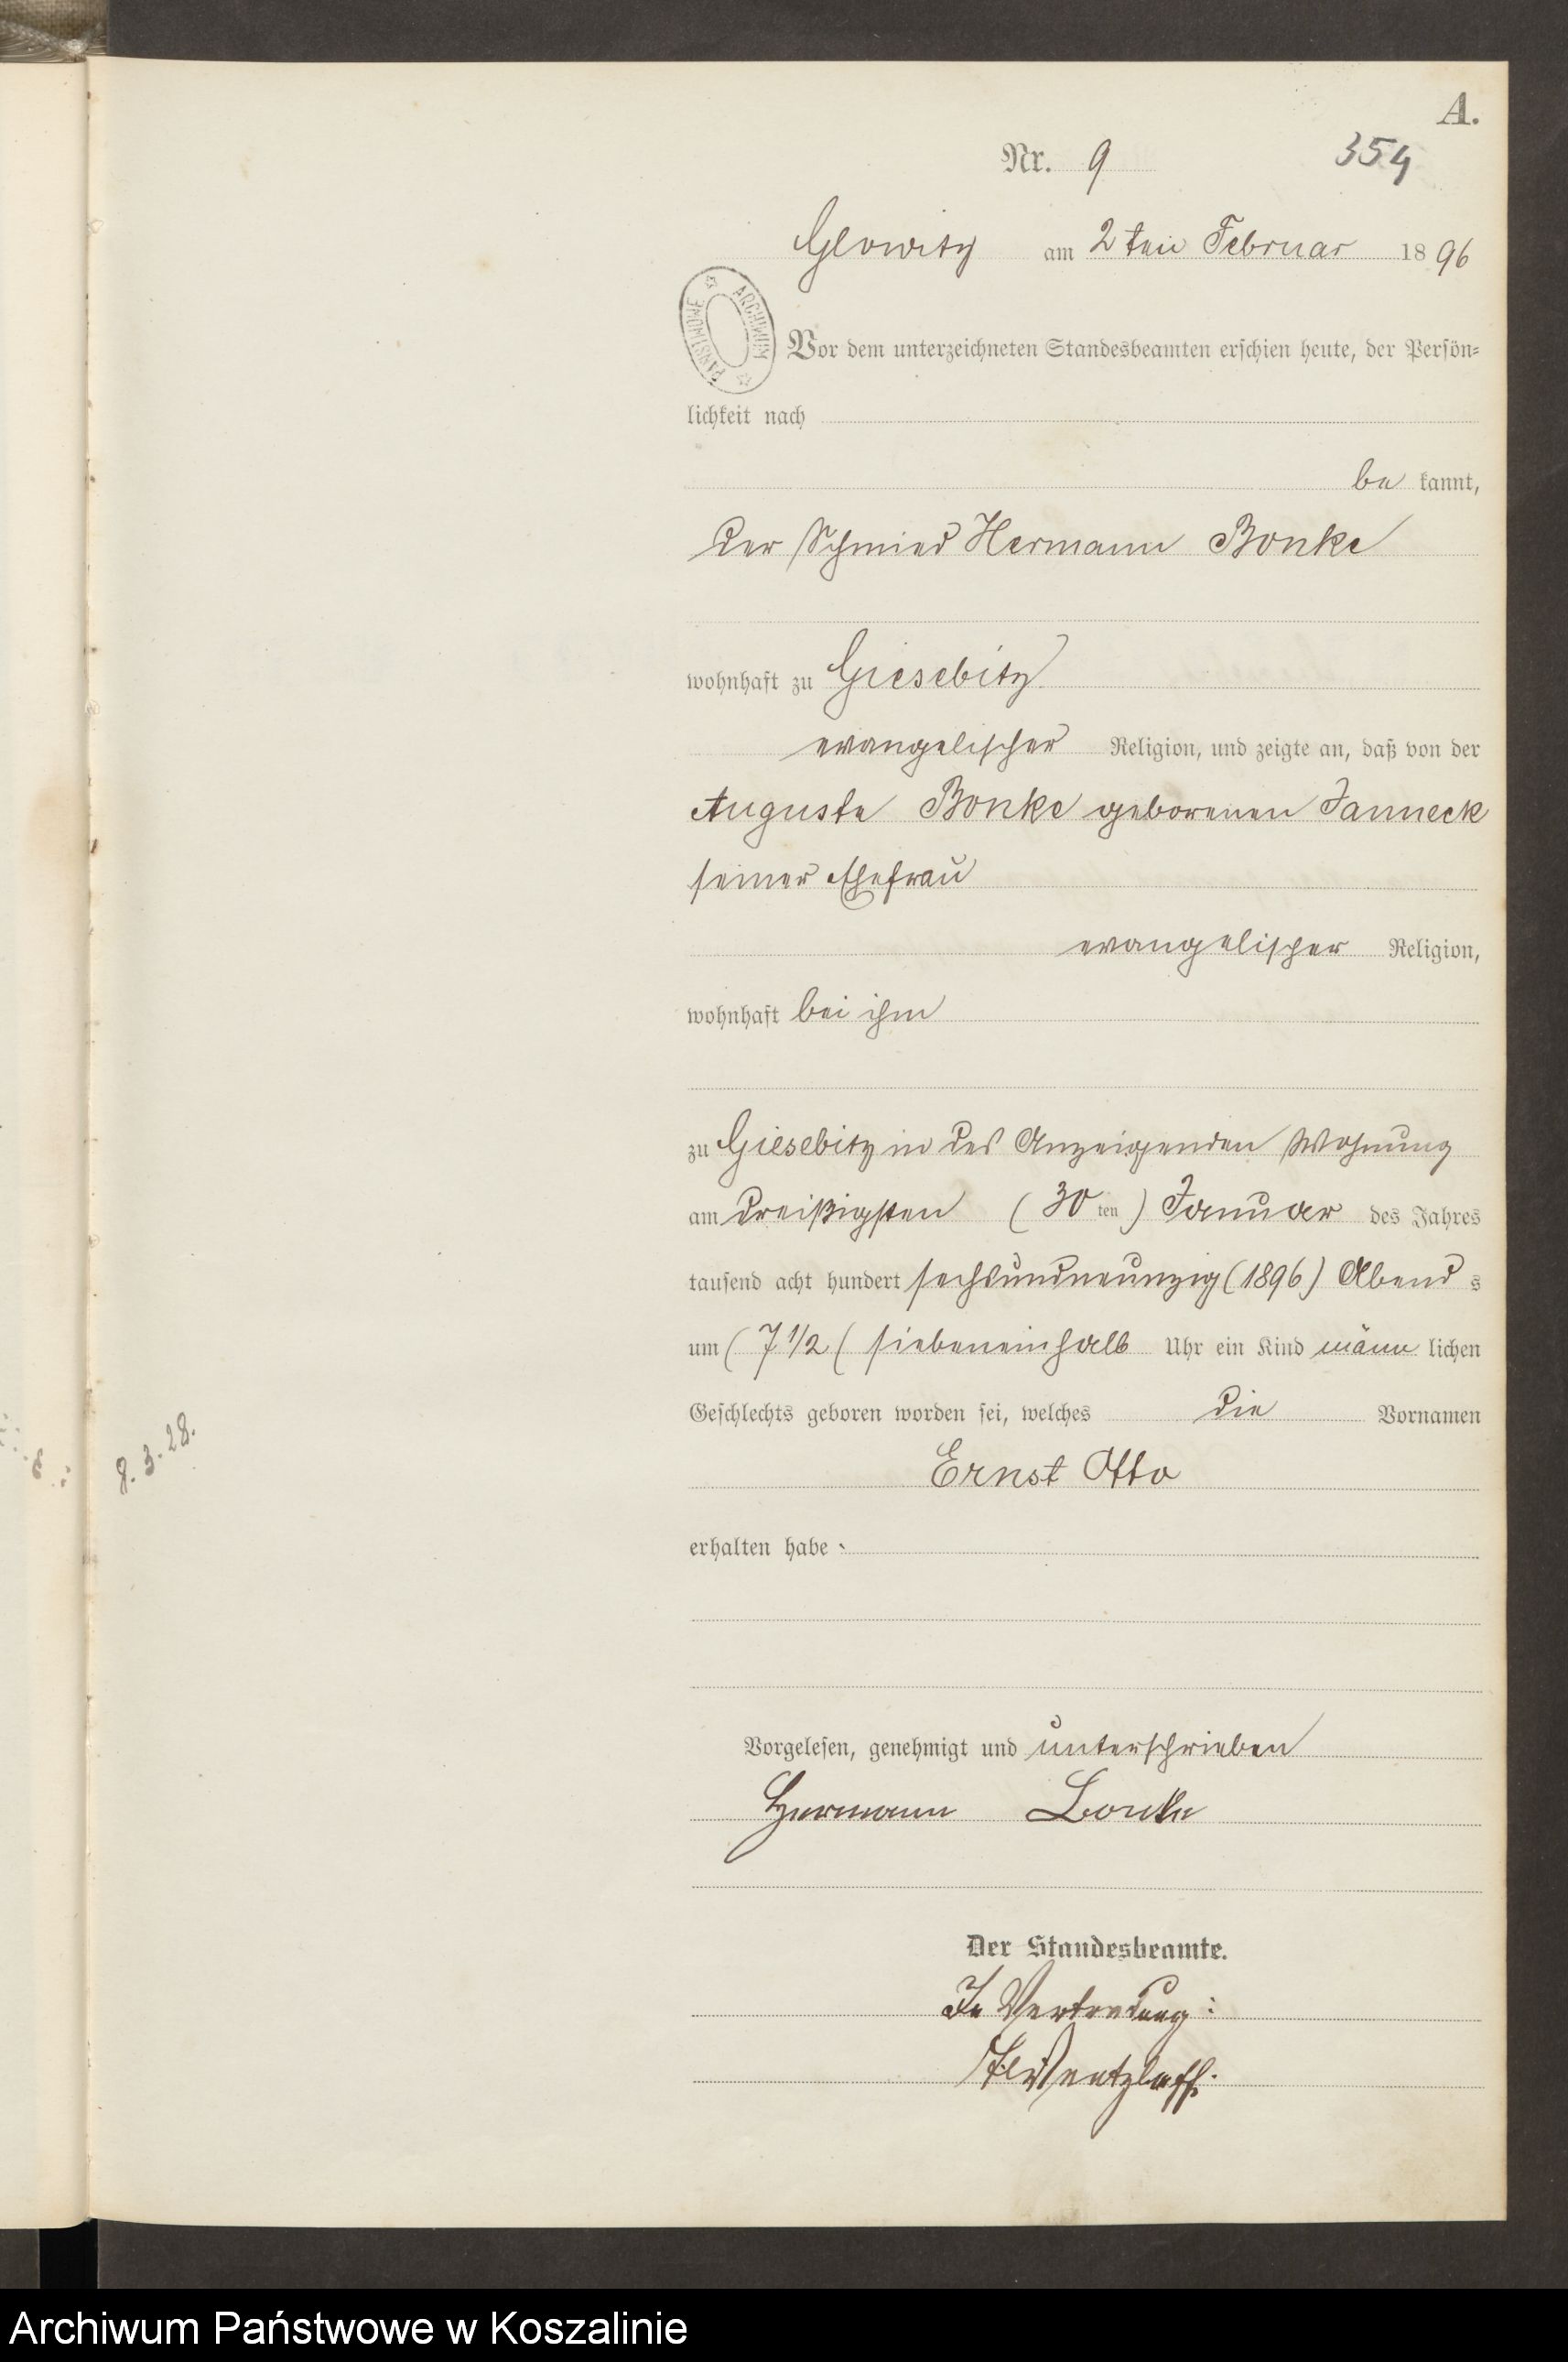 A.
Nr. 9
354
Glowitz am 2ten Februar 1896
ARCHIWUM PAŃSTWOWE
Vor dem unterzeichneten Standesbeamten erschien heute, der Persön-
lichkeit nach
be kannt,
der Schmied Hermann Bonke
wohnhaft zu Giesebitz
evangelischer Religion, und zeigte an, daß von der
Auguste Bonke geborenen Janneck
seiner Ehefrau
evangelischer Religion,
wohnhaft bei ihm
zu Giesebitz in des Anzeigenden Wohnung
am dreißigsten (30 ten) Januar des Jahres
tausend acht hundert sechsundneunzig (1896) Abend s
um (7 1/2 ( siebeneinhalb Uhr ein Kind männ lichen
Geschlechts geboren worden sei, welches die Vornamen
Ernst Otto
8.3.28.
erhalten habe.
Vorgelesen, genehmigt und unterschrieben
Hermann Bonke
Der Standesbeamte.
In Vertretung:
Wentzlaff.
Archiwum Państwowe w Koszalinie